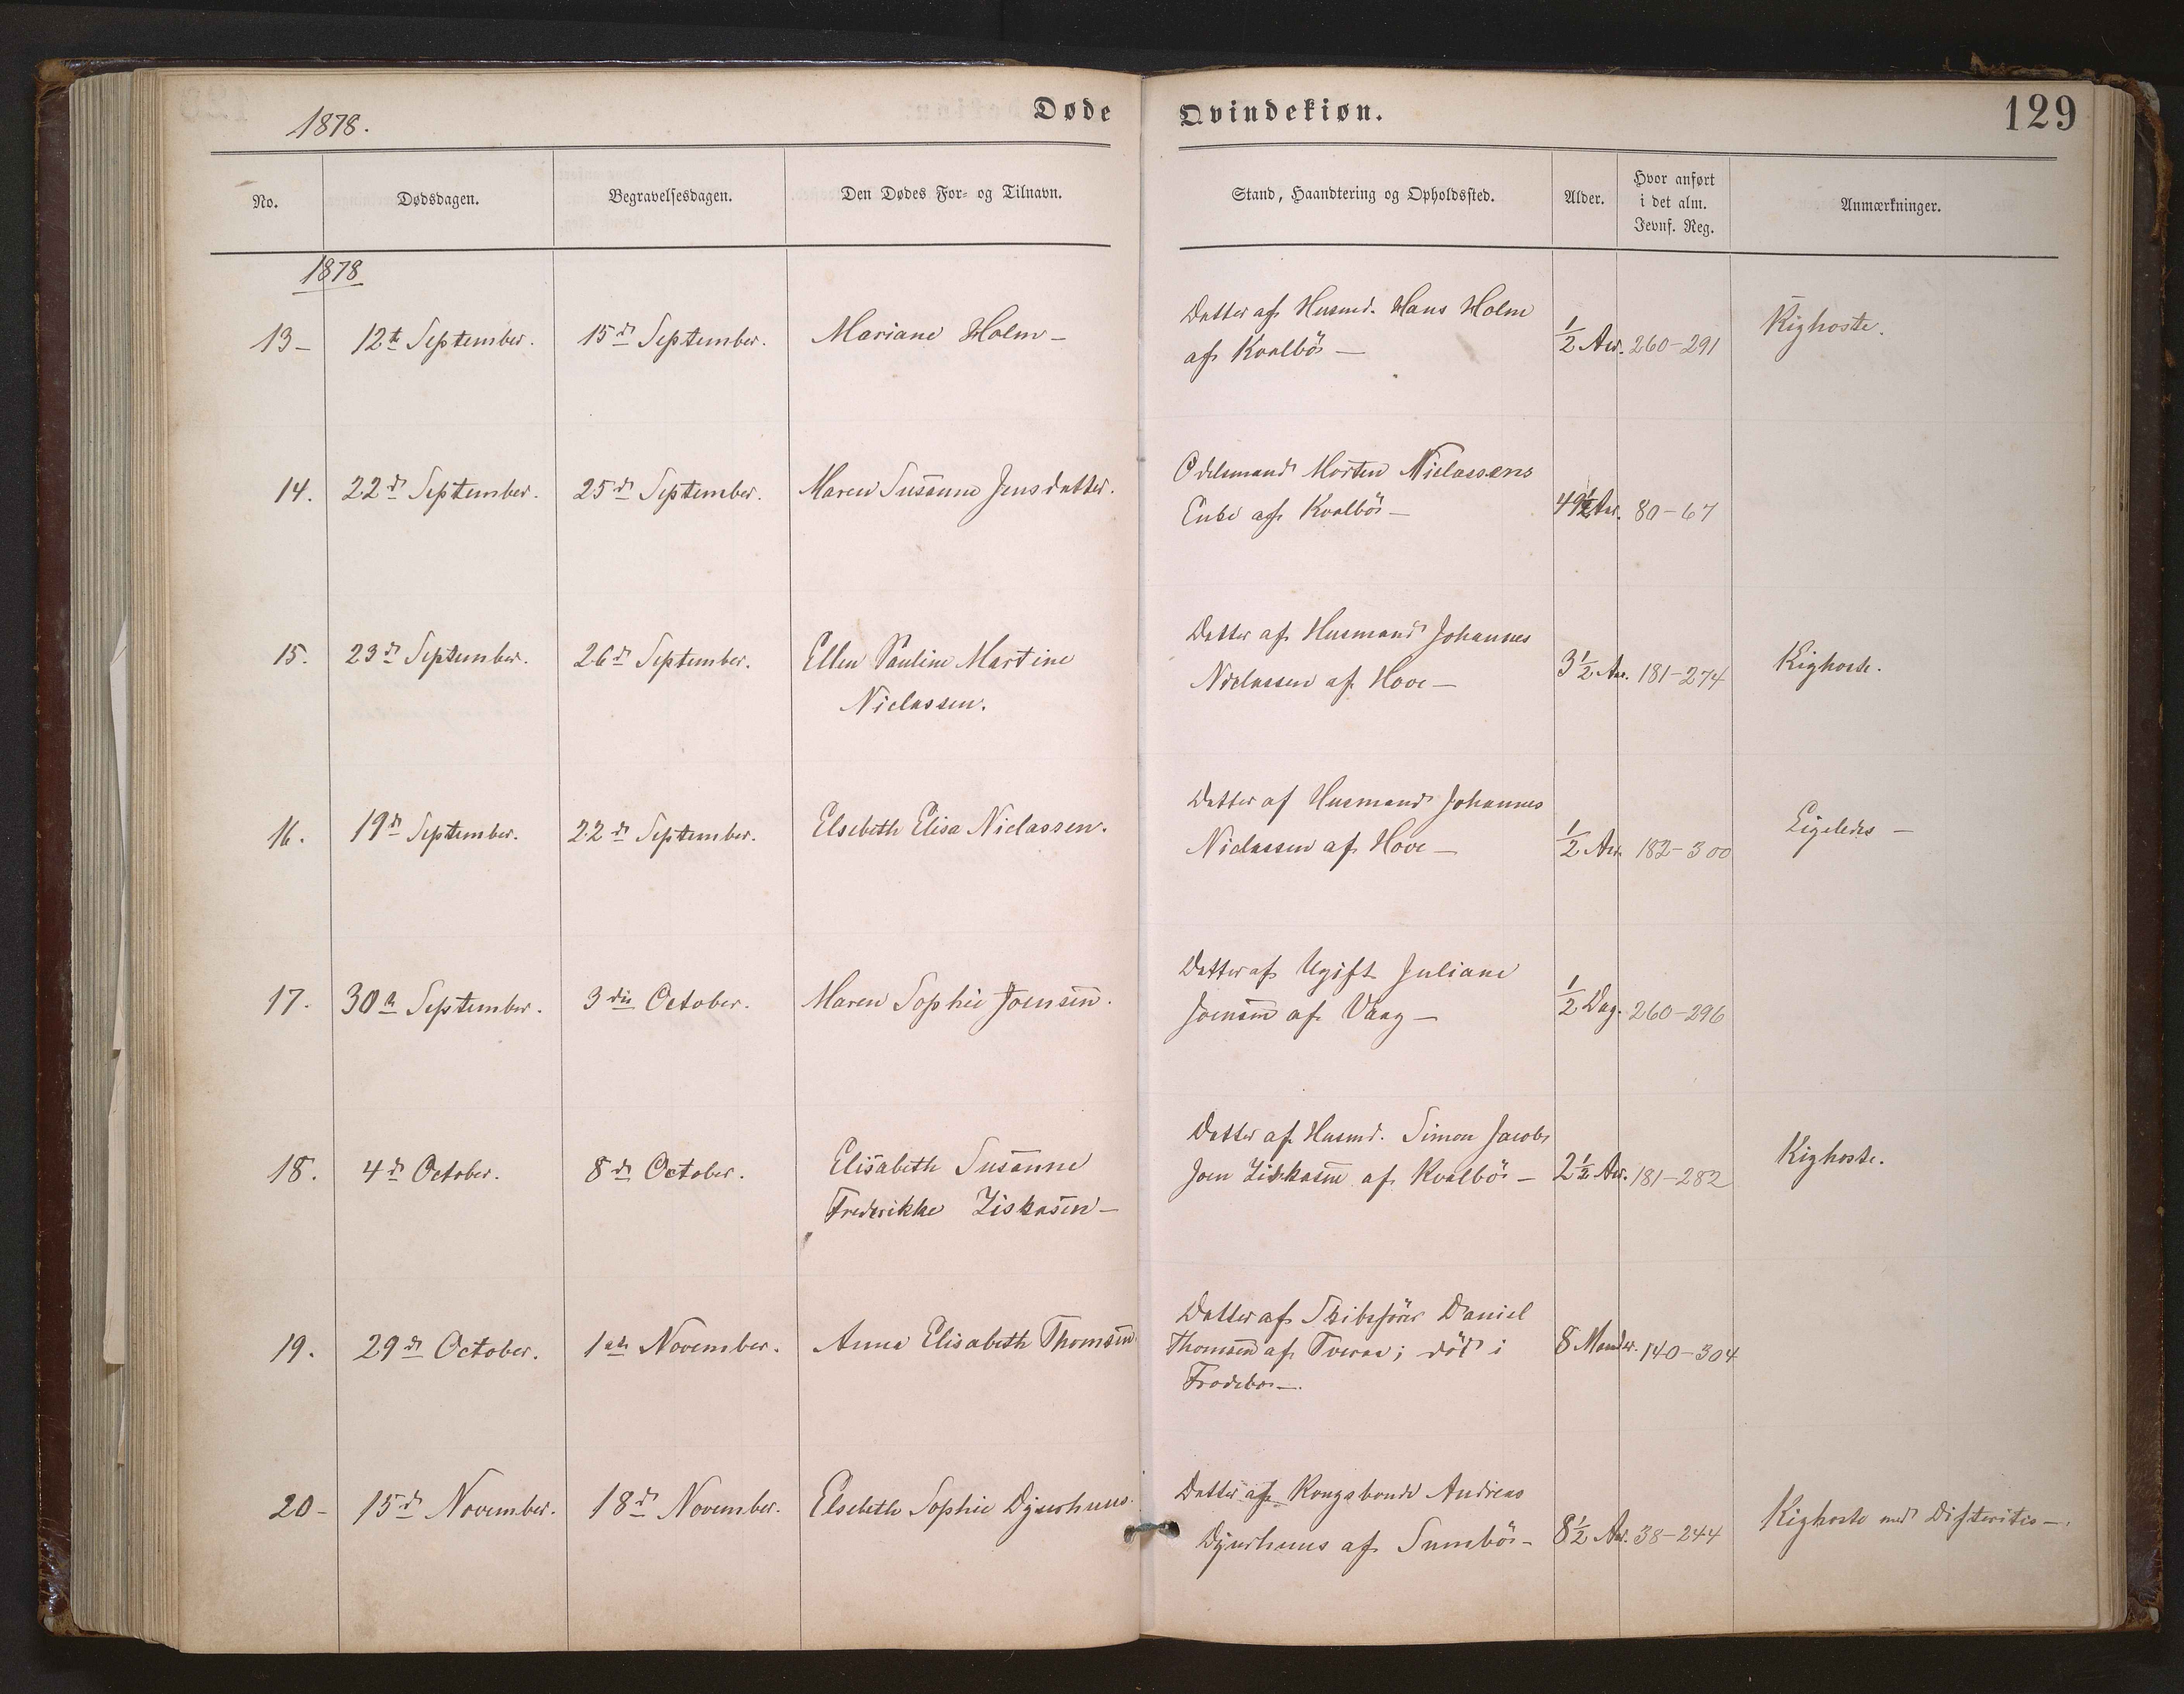 1878.
Døde
Qvindekiøn.
129
No.
Dødsdagen.
Begravelsesdagen.
Den Dødes For- og Tilnavn.
Stand, Haandtering og Opholdssted.
Alder.
Hvor anført
i det alm.
Jevnf. Reg.
Anmærkninger.
1878
13- 12te September. 15de September. Mariane Holm-
Datter af Husmd. Hans Holm
af Kvalbö-
1/2 Aar. 260-291
Kighoste.
14. 22de September. 25de September. Maren Susanne Jensdatter.
Odelsmand Morten Niclassens
Enke af Kvalbö-
49 1/2 Aar. 80-67
15. 23de September. 26de September. Ellen Pauline Martine
Niclassen.
Datter af Husmand Johannes
Niclassen af Hove-
3 1/2 Aar. 181-274
Kighoste.
16. 19de September. 22de September. Elsebeth Elisa Niclassen.
Datter af Husmand Johannes
Niclassen af Hove-
1/2 Aar. 182-300
Ligeledes-
17. 30te September. 3die October. Maren Sophie Joensen.
Datter af Ugift Juliane
Joensen af Vaag-
1/2 Dag. 260-296
18. 4de October. 8de October. Elisabeth Susanne
Frederikke Ziskasen-
Datter af Husmd. Simon Jacob
Joen Ziskasen af Kvalbö-
2 1/2 Aar. 181-282
Kighoste.
19. 29de October. 1ste November. Anna Elisabeth Thomsen
Datter af Skibsförer Daniel
Thomsen af Tveraa; död i
Frodebö-.
8 Maaneder. 140-304
20- 15de November. 18de November. Elsebeth Sophie Djurhuus.
Datter af Kongsbonde Andreas
Djurhuus af Sumbö-
8 1/2 Aar. 38-244
Kighoste med Difteritis-.